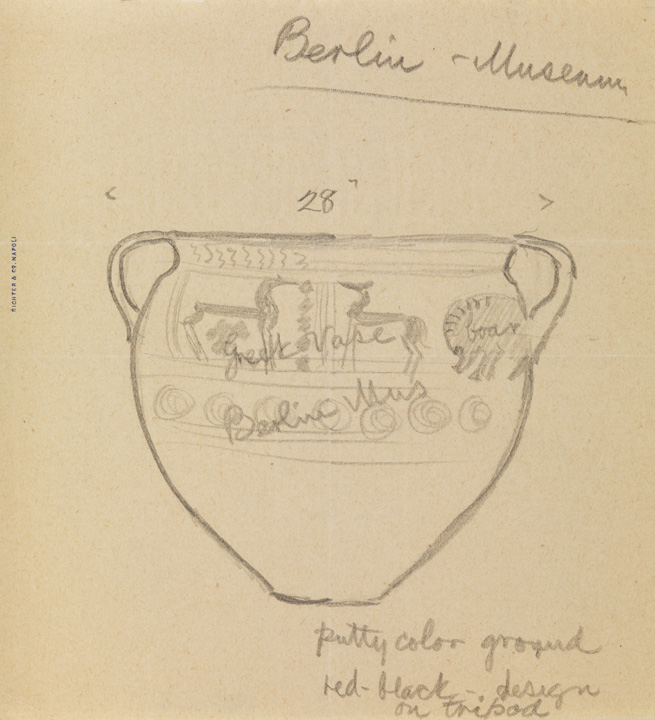 Berlin - Museum
28"
RICHTER & CO. NAPOLI
Greek Vase
boar
Berlin Mus
putty color ground
red-black - design
on tripod